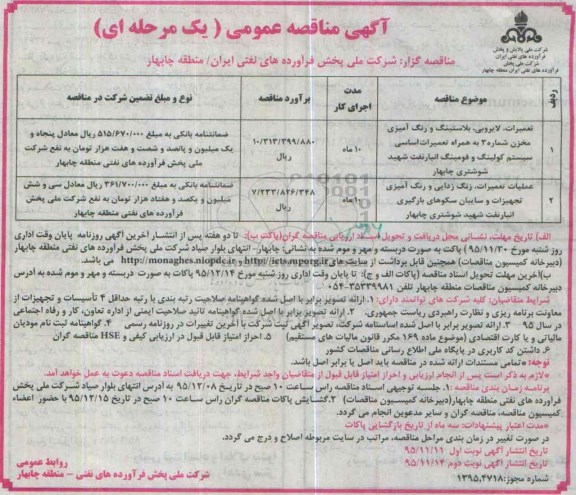 آگهی مناقصه عمومی ( یک مرحله ای)
شرکت ملی پالایش و پخش
فرآورده های نفتی ایران
شرکت ملی پخش
فرآورده های نفتی ایران منطقه چابهار
مناقصه گزار: شرکت ملی پخش فرآورده های نفتی ایران/ منطقه چابهار
ردیف
موضوع مناقصه
مدت اجرای کار
برآورد مناقصه
نوع و مبلغ تضمین شرکت در مناقصه
۱
تعمیرات، لایروبی، بلاستینگ و رنگ آمیزی
مخزن شماره۳ به همراه تعمیرات اساسی
سیستم کولینگ و فومینگ انبارنفت شهید
شوشتری چابهار
۱۰ ماه
۱۰/۳۱۳/۳۹۹/۸۸۰
ریال
ضمانتنامه بانکی به مبلغ ۵۱۵/۶۷۰/۰۰۰ ریال معادل پنجاه و
یک میلیون و پانصد و شصت و هفت هزار تومان به نفع شرکت
ملی پخش فرآورده های نفتی منطقه چابهار
۲
عملیات تعمیرات، رنگ زدایی و رنگ آمیزی
تجهیزات و سایبان سکوهای بارگیری
انبارنفت شهید شوشتری چابهار
۱۰ ماه
۷/۲۳۳/۸۲۶/۳۴۸
ریال
ضمانتنامه بانکی به مبلغ ۳۶۱/۷۰۰/۰۰۰ ریال معادل سی و شش
میلیون و یکصد و هفتاد هزار تومان به نفع شرکت ملی پخش
فرآورده های نفتی منطقه چابهار
الف) تاریخ مهلت، نشانی محل دریافت و تحویل اسناد ارزیابی مناقصه گران(پاکت ب): تا دو هفته پس از انتشار آخرین آگهی روزنامه پایان وقت اداری
روز شنبه مورخ ۹۵/۱۱/۳۰) پاکت به صورت دربسته و مهر و موم شده به نشانی: چابهار- انتهای بلوار صیاد شرکت ملی پخش فرآورده های نفتی منطقه چابهار
(دبیرخانه کمیسیون مناقصات) همچنین قابل برداشت از سایت های http://iets.mporg.ir و http://monaghes.niopdc.ir می باشد.
ب)آخرین مهلت تحویل اسناد مناقصه (پاکات الف و ج): تا پایان وقت اداری روز شنبه مورخ ۹۵/۱۲/۱۴ پاکات به صورت دربسته و مهر و موم شده به آدرس
دبیرخانه کمیسیون مناقصات منطقه چابهار تلفن ۳۵۳۳۹۹۸۱-۰۵۴
شرایط متقاضیان: کلیه شرکت های توانمند دارای: ۱. ارائه تصویر برابر با اصل شده گواهینامه صلاحیت رتبه بندی با رتبه حداقل ۴ تأسیسات و تجهیزات از
معاونت برنامه ریزی و نظارت راهبردی ریاست جمهوری. ۲. ارائه تصویر برابر با اصل شده گواهینامه تائید صلاحیت ایمنی از اداره تعاون، کار و رفاه اجتماعی
در سال ۹۵ ۳. ارائه تصویر برابر با اصل شده اساسنامه شرکت، تصویر آگهی ثبت شرکت با آخرین تغییرات در روزنامه رسمی ۴. گواهینامه ثبت نام مودیان
مالیاتی و یا کارت اقتصادی (موضوع ماده ۱۶۹ مکرر قانون مالیات های مستقیم) ۵. احراز امتیاز قابل قبول در ارزیابی کیفی و HSE مناقصه گران
۶. داشتن کد کاربری در پایگاه ملی اطلاع رسانی مناقصات کشور
توجه: تمامی مستندات ارائه شده در مناقصه باید اصل یا برابر اصل باشد.
*لازم به ذکر است پس از انجام ارزیابی و احراز امتیاز قابل قبول از متقاضیان واجد شرایط، جهت دریافت اسناد مناقصه دعوت به عمل خواهد آمد.
برنامه زمان بندی مناقصه: ۱. جلسه توجیهی اسناد مناقصه راس ساعت ۱۰ صبح در تاریخ ۹۵/۱۲/۰۸ به ادرس انتهای بلوار صیاد شرکت ملی پخش
فرآورده های نفتی منطقه چابهار(دبیرخانه کمیسیون مناقصات) ۲.گشایش پاکات مناقصه گران راس ساعت ۱۰ صبح در تاریخ ۹۵/۱۲/۱۵ با حضور اعضاء
کمیسیون مناقصه، مناقصه گران و سایر مدعوین انجام می گردد.
*مدت اعتبار پیشنهادات: سه ماه از تاریخ بازگشایی پاکات
در صورت تغییر در زمان بندی مراحل مناقصه، مراتب در سایت مربوطه اصلاح و درج می گردد.
تاریخ انتشار آگهی نوبت اول ۹۵/۱۱/۱۱
تاریخ انتشار آگهی نوبت دوم ۹۵/۱۱/۱۴
شماره مجوز: ۱۳۹۵.۴۷۱۸
روابط عمومی
شرکت ملی پخش فرآورده های نفتی - منطقه چابهار